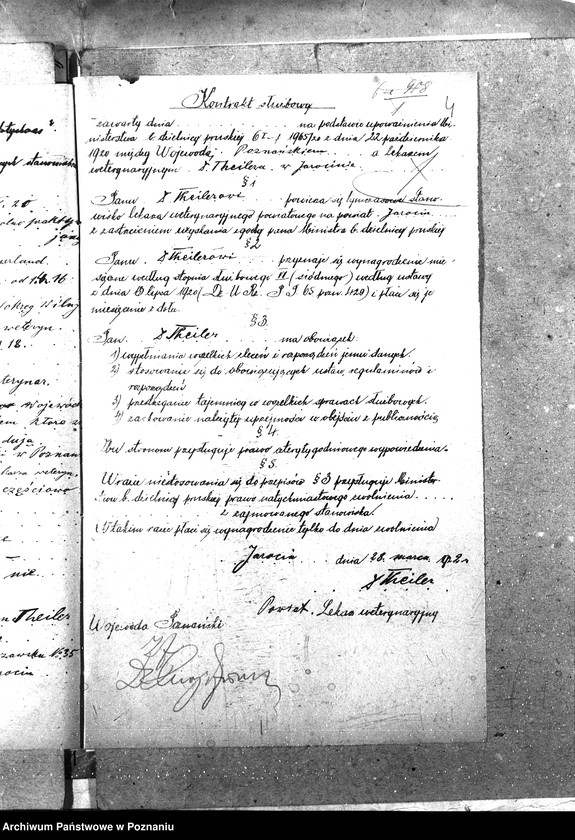 otyczas".
ych stanowisk
20
olno prakty
jany
erland.
od 1.4.16
okręg Wilny
weteryn.
18.
terynar.
Wojewód
em która z
duja
w Poznan
karza weteryn.
częściowo
e
nie
Theiler
zawska No 35
ocin
478
4
Kontrakt służbowy
zawarty dnia na podstawie upoważnienia Mi-
nisterstwa b. dzielnicy pruskiej z dnia 22 października
1920 między Wojewodą Poznańskim a Lekarzem
weterynaryjnym D. Theilera w Jarocinie
§ 1
Panu D Theilerowi powierza się tymczasowo stano-
wisko lekarza weterynaryjnego powiatowego na powiat Jarocin
z zastrzeżeniem uzyskania zgody pana Ministra b. dzielnicy pruskiej
§ 2
Panu D Theilerowi przyznaje się wynagrodzenie mie-
sięczne według stopnia służbowego VII (siódmego) według ustawy
z dnia 13 lipca 1920 (Dz. U. Rz. P 65 poz. 429) i płaci się je
miesięcznie z dołu.
§ 3.
Pan D Theiler ma obowiązek
1) wypełniania wszelkich zleceń i rozporządzeń jemu danych.
2) stosowanie się do obowiązujących ustaw, regulaminów i
rozporządzeń
3) przestrzeganie tajemnicy w wszelkich sprawach służbowych.
4) zachowanie należytej uprzejmości w obejściu z publicznością
§ 4.
Obu stronom przysługuje prawo czterotygodniowego wypowiedzenia.
§ 5.
W razie niestosowania się do przepisów § 3 przysługuje Minister-
stwu b. dzielnicy pruskiej prawo natychmiastowego zwolnienia
z zajmowanego stanowiska.
(W takim razie płaci się wynagrodzenie tylko do dnia zwolnienia)
Jarocin dnia 28. marca 192
D Theiler
Powiat. Lekarz weterynaryjny
Wojewoda Poznański
Archiwum Państwowe w Poznaniu